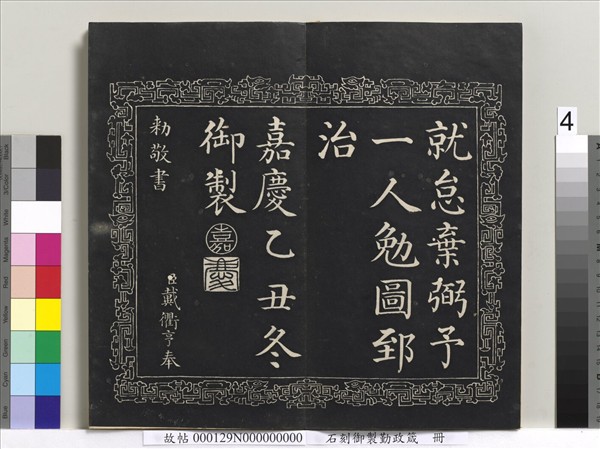 就怠棄弼予
一人勉圖郅
治
嘉慶乙丑冬
御製
嘉
慶
臣戴衢亨奉
勅敬書
4
故帖 000129N000000000 石刻御製勤政箴 冊
Black
3/Color
White
Magenta
Red
Yellow
Green
Cyan
Blue